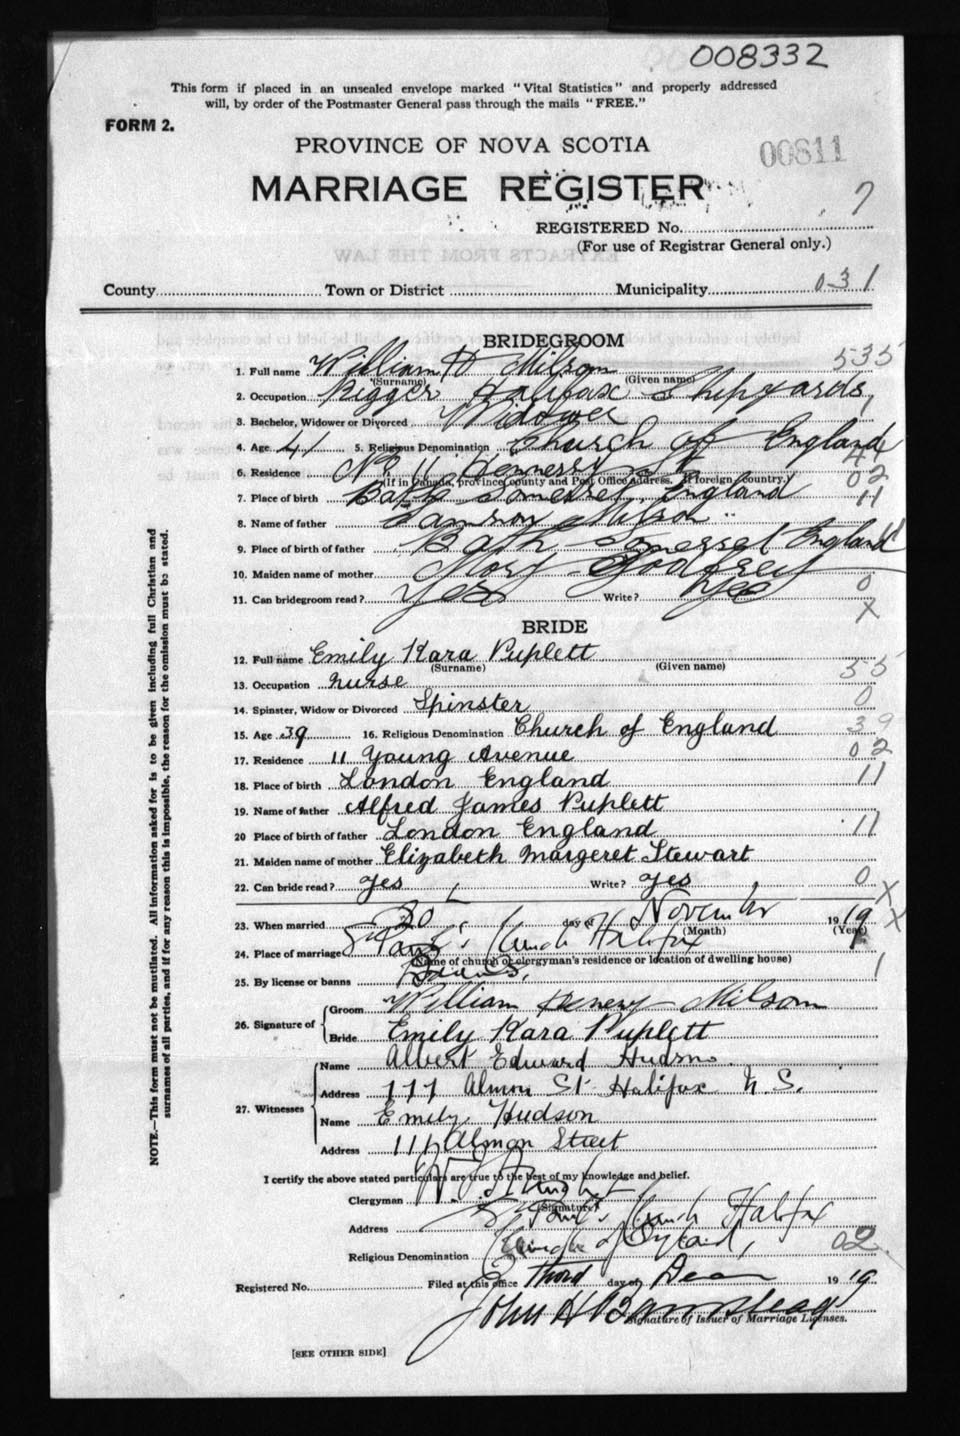 008332
This form if placed in an unsealed envelope marked "Vital Statistics" and properly addressed
will, by order of the Postmaster General pass through the mails "FREE."
FORM 2.
PROVINCE OF NOVA SCOTIA
00811
MARRIAGE REGISTER
7
REGISTERED No.
(For use of Registrar General only.)
County Town or District Municipality 031
BRIDEGROOM
1. Full name William H Milsom 535
(Surname) (Given name)
2. Occupation Rigger Halifax Shipyards
3. Bachelor, Widower or Divorced Widower 1
4. Age 41 5. Religious Denomination Church of England 44
6. Residence No 11 Hennessy St 02
(If in Canada, province county and Post Office address. If foreign country.)
7. Place of birth Bath Somerset England 11
8. Name of father Milsom
9. Place of birth of father Bath Somerset England 11
10. Maiden name of mother Mary Godfrey
11. Can bridegroom read? Yes Write? Yes 0
X
BRIDE
12. Full name Emily Kara Puplett
(Surname) (Given name)
13. Occupation nurse 55
14. Spinster, Widow or Divorced Spinster 0
15. Age 39 16. Religious Denomination Church of England 39
17. Residence 11 Young Avenue 02
18. Place of birth London England 11
19. Name of father Alfred James Puplett
20 Place of birth of father London England 11
21. Maiden name of mother Elizabeth Margeret Stewart
22. Can bride read? yes Write? yes 0 X
23. When married 30 day of November 1919 X
(Month) (Year)
24. Place of marriage St Paul's Church Halifax
(Name of church or clergyman's residence or location of dwelling house)
25. By license or banns Banns 1
26. Signature of
Groom William Henery Milsom
Bride Emily Kara Puplett
27. Witnesses
Name Albert Edward Hudson
Address 117 Almon St Halifax N.S.
Name Emily Hudson
Address 117 Almon Street
I certify the above stated particulars are true to the best of my knowledge and belief.
Clergyman
(Signature)
Address St Paul's Church Halifax
Religious Denomination Church of England 02
Registered No. Filed at this office Third day of Dec 1919
John H Barnstead
Signature of Issuer of Marriage Licenses.
[SEE OTHER SIDE]
NOTE.—This form must not be mutilated. All information asked for is to be given including full Christian and
surnames of all parties, and if for any reason this is impossible, the reason for the omission must be stated.